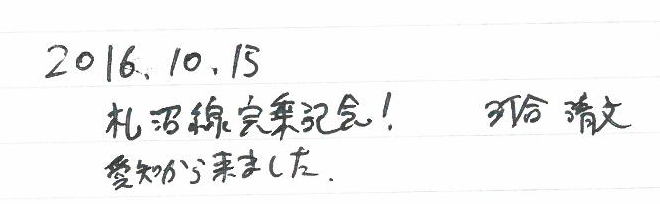 2016.10.15
札沼線完乗記念! 河合 清文
愛知から来ました.